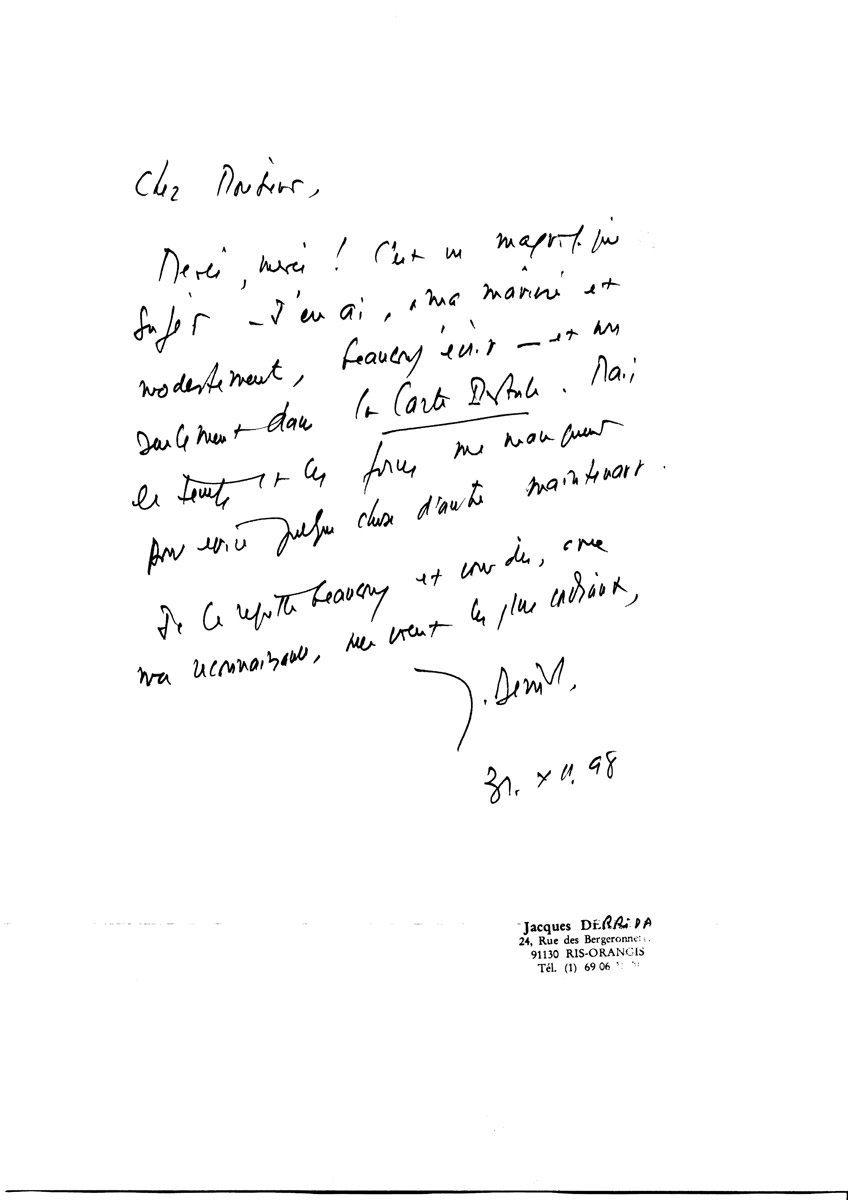 Cher Monsieur,
Merci, merci ! C'est un magnifique
sujet – J'en ai, à ma manière et
modestement, beaucoup écrit – et non
seulement dans la Carte Postale. Mais
le temps et les forces me manquent
pour écrire quelque chose d'autre maintenant.
Je le regrette beaucoup et vous dis, avec
ma reconnaissance, mes vœux les plus cordiaux,
J. Derrida
31. XII. 98
Jacques DERRIDA
24, Rue des Bergeronnet
91130 RIS-ORANGIS
Tél. (1) 69 06